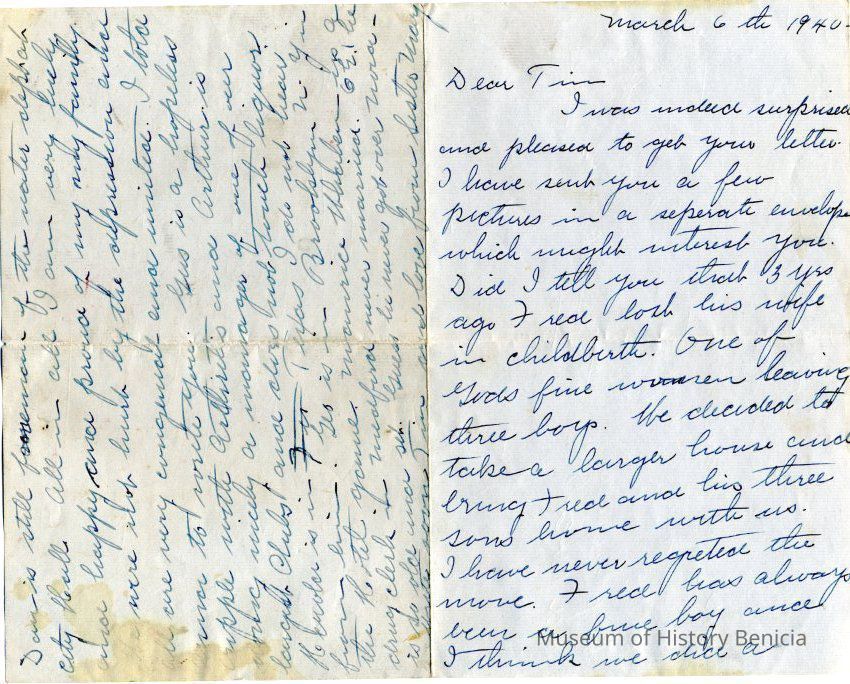 March 6 th 1940-
Dear Tim
I was indeed surprised
and pleased to get your letter.
I have sent you a few
pictures in a seperate envelope
which might interest you.
Did I tell you that 3 yrs
ago Fred lost his wife
in childbirth. One of
Gods fine women leaving
three boys. We decided to
take a larger house and
bring Fred and his three
sons home with us.
I have never regreted the
move. Fred has always
been a fine boy and
I think we did a
Dan is still foreman of the water depart
city Hall. All in all I am very lucky
and happy and proud of my family.
were not hurt by the depression and
are very congenial and united. I told
to write you. Gus is a hopeless
with arthritis and Arthur is
a manager of one of our
Clubs and does not touch liquor.
is in Texas I do not hear
from him. Geo is in Brooklyn N.Y. in
the same. Maurice Whelan is a
drug clerk & never married. he
is so old and Guess he never got over
love from Sister Mary
Museum of History Benicia